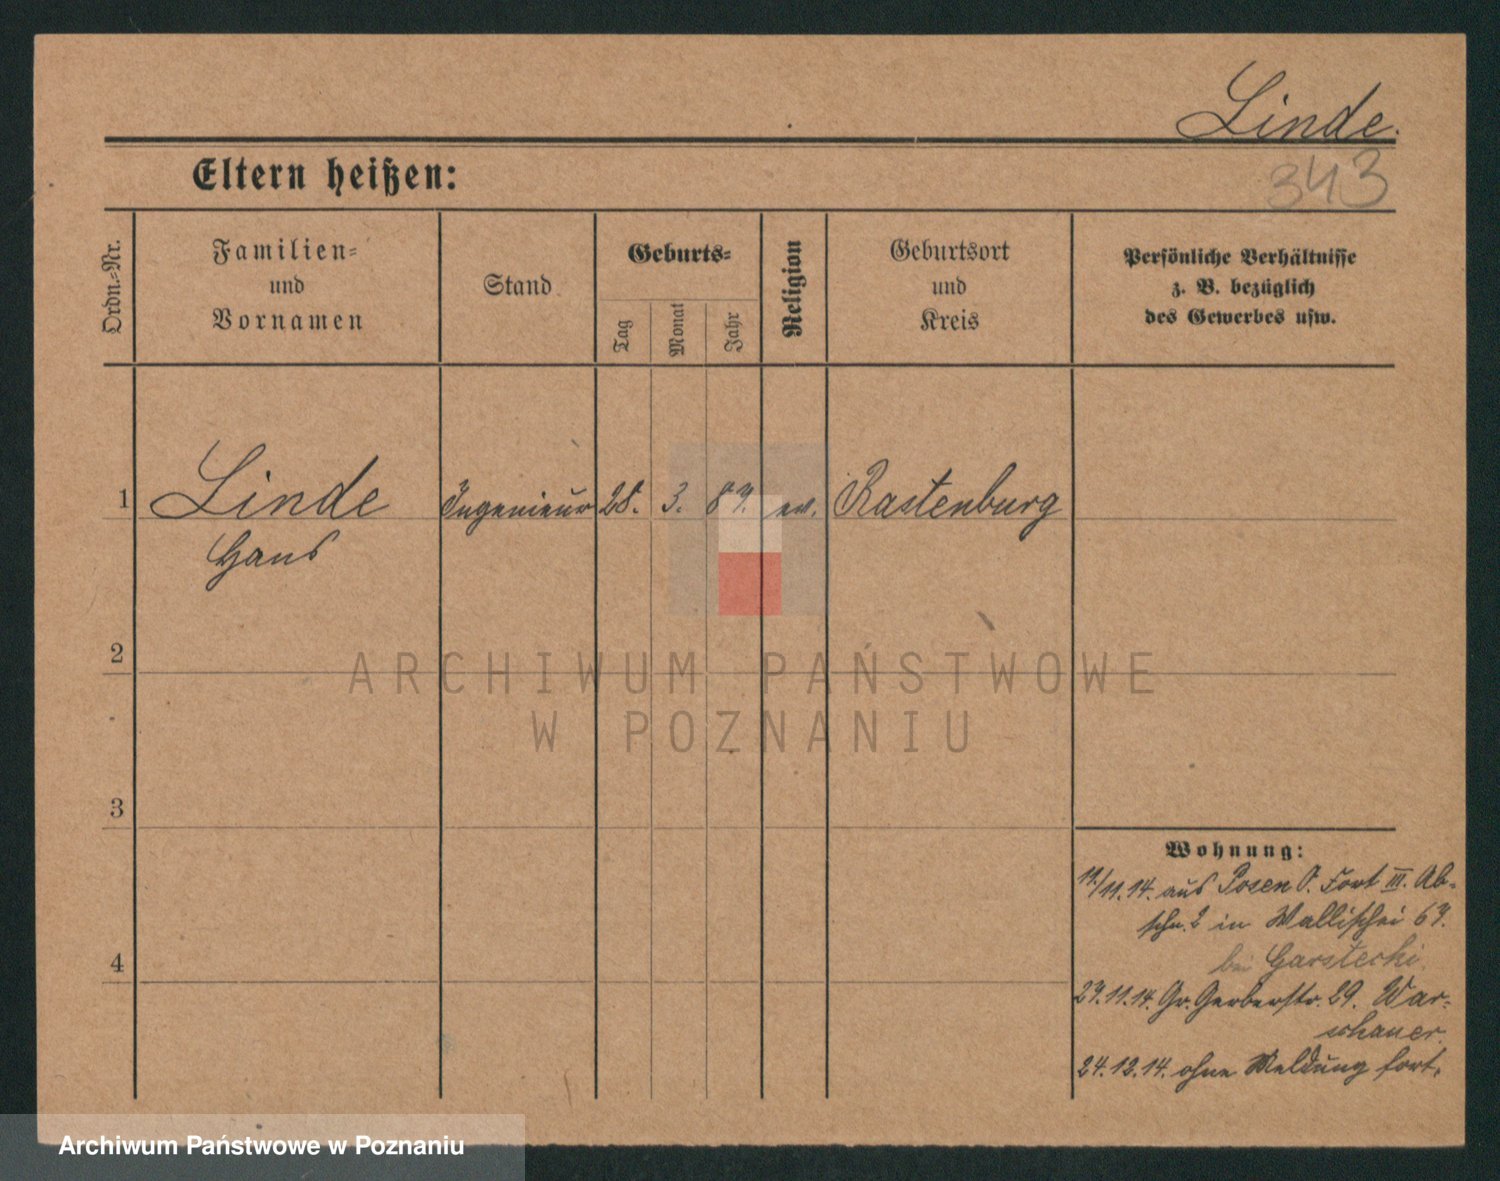 Linde.
343
Eltern heißen:
Ordn.-Nr.
Familien-
und
Vornamen
Stand
Geburts-
Tag
Monat
Jahr
Religion
Geburtsort
und
Kreis
Persönliche Verhältnisse
z. B. bezüglich
des Gewerbes usw.
1 Linde Ingenieur 28. 3. 87. ev. Rastenburg
Hans
2
ARCHIWUM PAŃSTWOWE
W POZNANIU
3
Wohnung:
17/11.14. aus Posen O. Fort III. Ab-
schn. 2 in Wallischei 67.
bei Garstecki
27.11.14. Gr. Gerberstr. 29. War-
schauer.
24.12.14. ohne Meldung fort.
4
Archiwum Państwowe w Poznaniu